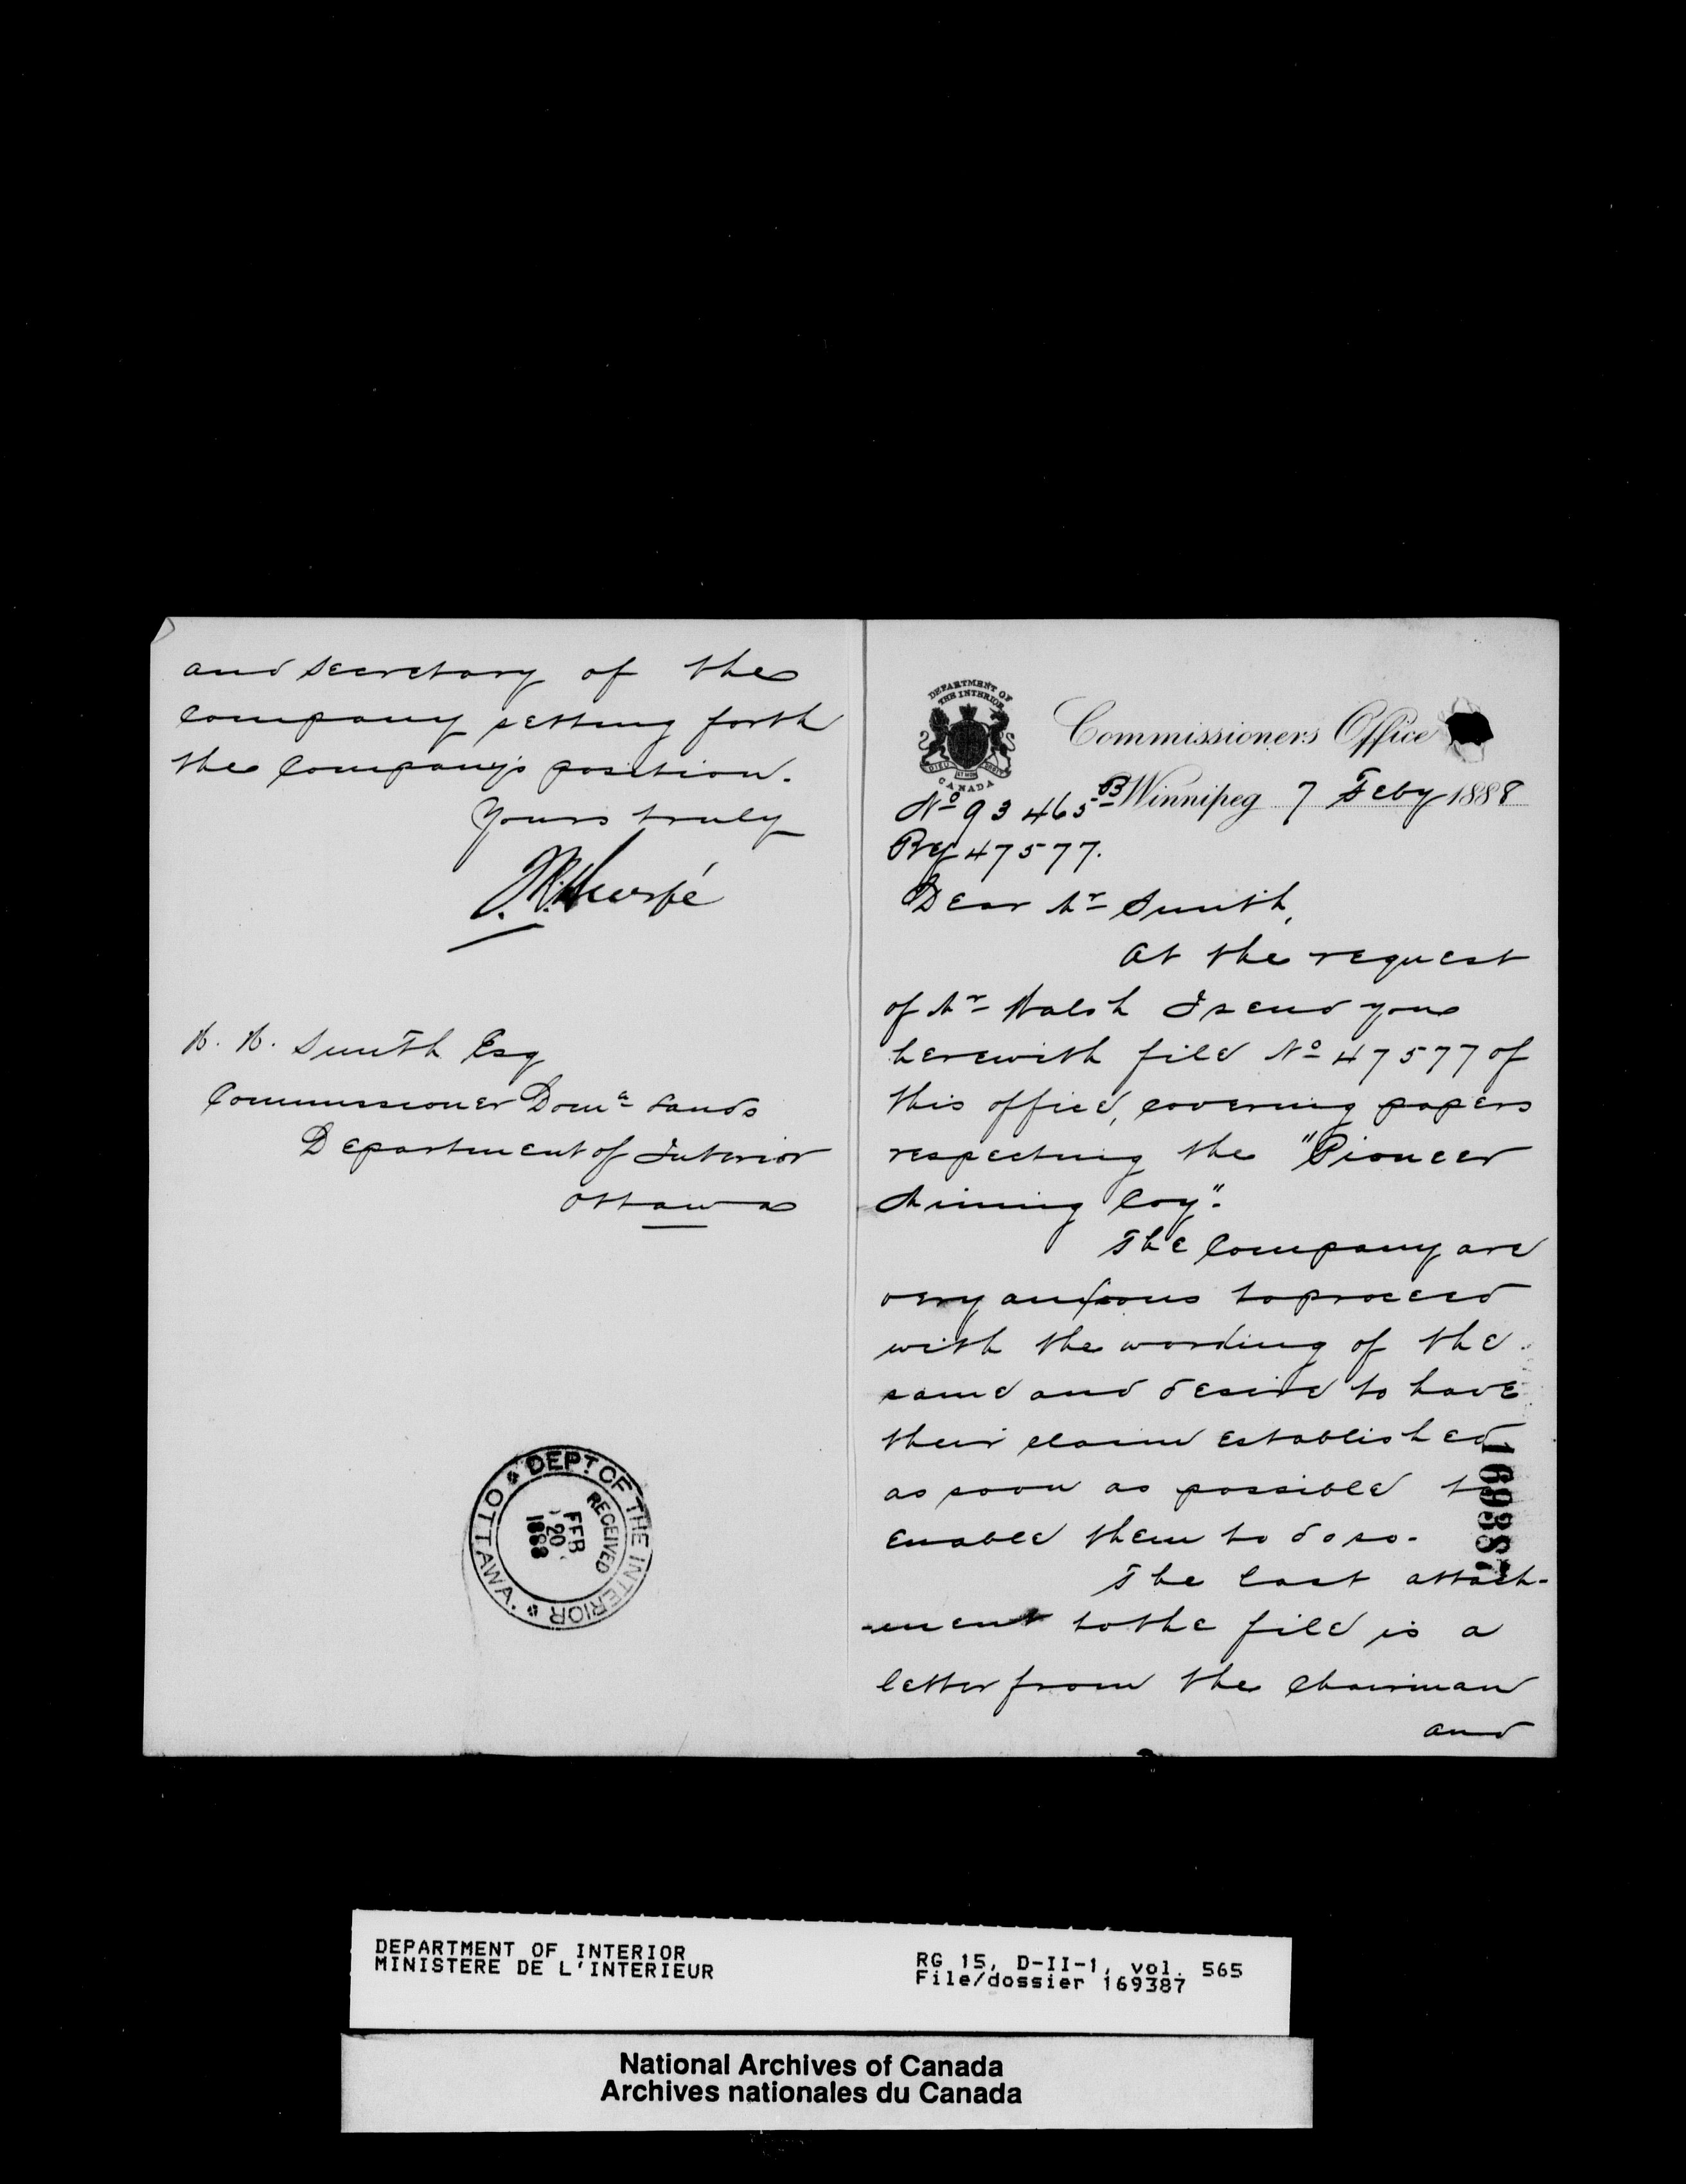 DEPARTMENT OF
THE INTERIOR
CANADA
Commissioners Office
Winnipeg 7 Feby 1888
No 93465 B
Ref 47577.
Dear Mr Smith,
At the request
of Mr Walsh I send you
herewith file No 47577 of
this office, covering papers
respecting the "Pioneer
Mining Coy".
The Company are
very anxious to proceed
with the working of the
same and desire to have
their claim established
as soon as possible to
enable them to do so.
The last attach-
-ment to the file is a
letter from the Chairman
and
169387
and Secretary of the
Company setting forth
the Company's position.
Yours truly
H. H. Smith Esq
Commissioner Domn Lands
Department of Interior
Ottawa
DEPT. OF THE INTERIOR
RECEIVED
FEB
20
1888
OTTAWA.
DEPARTMENT OF INTERIOR
MINISTERE DE L'INTERIEUR
RG 15, D-II-1, vol. 565
File/dossier 169387
National Archives of Canada
Archives nationales du Canada